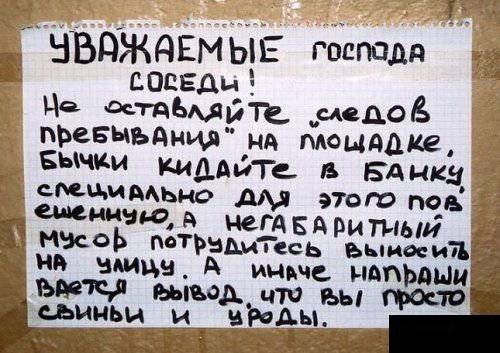 УВАЖАЕМЫЕ ГОСПОДА
СОСЕДИ!
Не оставляйте „следов
пребывания" на площадке,
Бычки кидайте в банку,
специально для этого пов
ешенную, а негабаритный
мусор потрудитесь выносить
на улицу. А иначе напраши
вается вывод, что вы просто
свиньи и уроды.